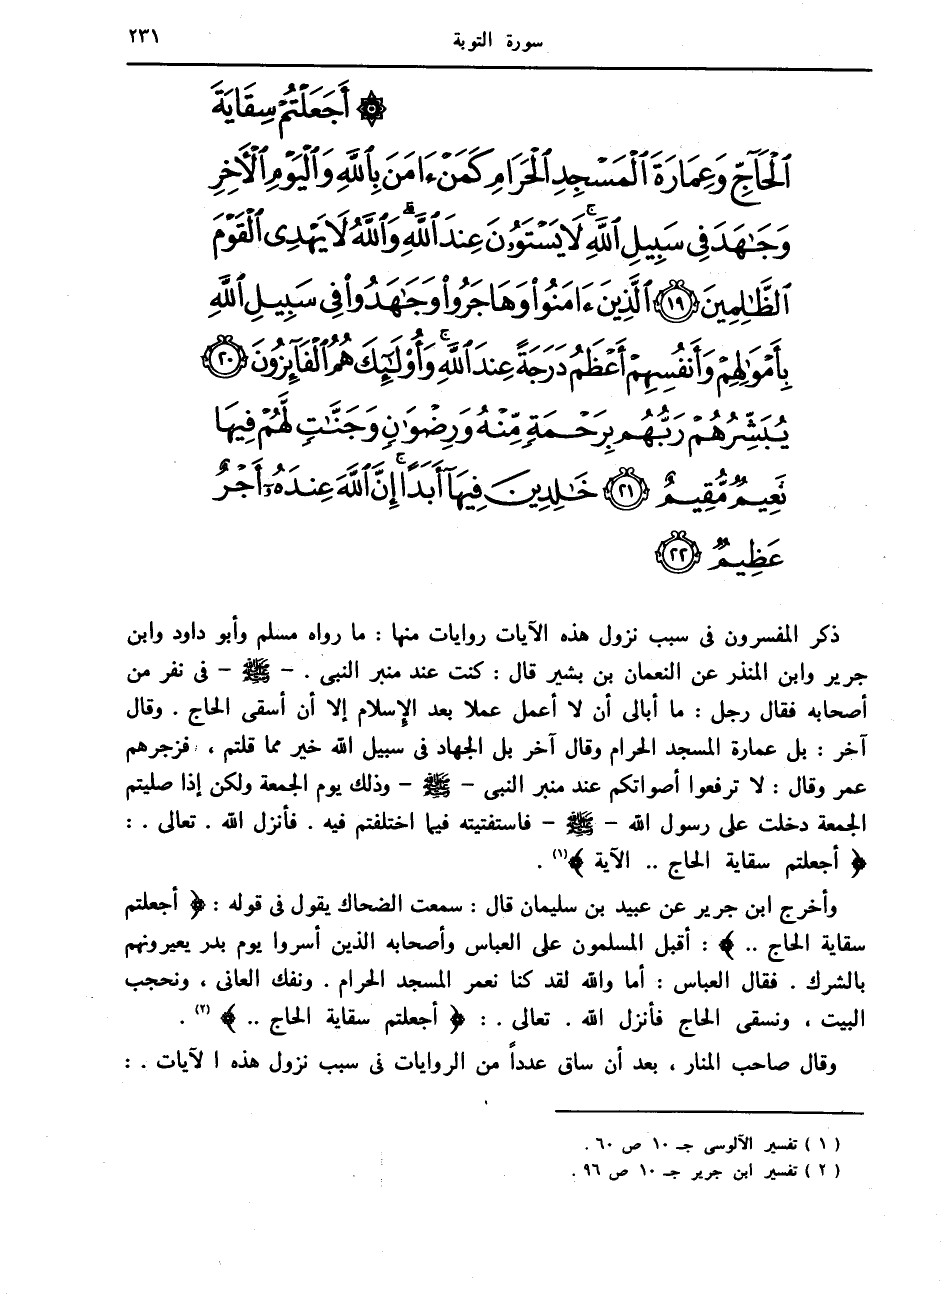 سورة التوبة ٢٣١
۞ أَجَعَلْتُمْ سِقَايَةَ
ٱلْحَآجِّ وَعِمَارَةَ ٱلْمَسْجِدِ ٱلْحَرَامِ كَمَنْ ءَامَنَ بِٱللَّهِ وَٱلْيَوْمِ ٱلْأَخِرِ
وَجَٰهَدَ فِى سَبِيلِ ٱللَّهِۚ لَا يَسْتَوُۥنَ عِندَ ٱللَّهِۗ وَٱللَّهُ لَا يَهْدِى ٱلْقَوْمَ
ٱلظَّٰلِمِينَ ١٩ ٱلَّذِينَ ءَامَنُوا۟ وَهَاجَرُوا۟ وَجَٰهَدُوا۟ فِى سَبِيلِ ٱللَّهِ
بِأَمْوَٰلِهِمْ وَأَنفُسِهِمْ أَعْظَمُ دَرَجَةً عِندَ ٱللَّهِۚ وَأُو۟لَٰٓئِكَ هُمُ ٱلْفَآئِزُونَ ٢٠
يُبَشِّرُهُمْ رَبُّهُم بِرَحْمَةٍ مِّنْهُ وَرِضْوَٰنٍ وَجَنَّٰتٍ لَّهُمْ فِيهَا
نَعِيمٌ مُّقِيمٌ ٢١ خَٰلِدِينَ فِيهَآ أَبَدًاۚ إِنَّ ٱللَّهَ عِندَهُۥٓ أَجْرٌ
عَظِيمٌ ٢٢
ذكر المفسرون فى سبب نزول هذه الآيات روايات منها : ما رواه مسلم وأبو داود وابن
جرير وابن المنذر عن النعمان بن بشير قال : كنت عند منبر النبى . - ﷺ - فى نفر من
أصحابه فقال رجل : ما أبالى أن لا أعمل عملا بعد الإسلام إلا أن أسقى الحاج . وقال
آخر : بل عمارة المسجد الحرام وقال آخر بل الجهاد فى سبيل الله خير مما قلتم ، فزجرهم
عمر وقال : لا ترفعوا أصواتكم عند منبر النبى - ﷺ - وذلك يوم الجمعة ولكن إذا صليتم
الجمعة دخلت على رسول الله - ﷺ - فاستفتيته فيما اختلفتم فيه . فأنزل الله . تعالى . :
﴿ أجعلتم سقاية الحاج .. الآية ﴾(١) .
وأخرج ابن جرير عن عبيد بن سليمان قال : سمعت الضحاك يقول فى قوله : ﴿ أجعلتم
سقاية الحاج .. ﴾ : أقبل المسلمون على العباس وأصحابه الذين أسروا يوم بدر يعيرونهم
بالشرك . فقال العباس : أما والله لقد كنا نعمر المسجد الحرام . ونفك العانى ، ونحجب
البيت ، ونسقى الحاج فأنزل الله . تعالى . : ﴿ أجعلتم سقاية الحاج .. ﴾ (٢) .
وقال صاحب المنار ، بعد أن ساق عدداً من الروايات فى سبب نزول هذه ا لآيات . :
( ١ ) تفسير الآلوسى جـ ١٠ ص ٦٠ .
( ٢ ) تفسير ابن جرير جـ ١٠ ص ٩٦ .